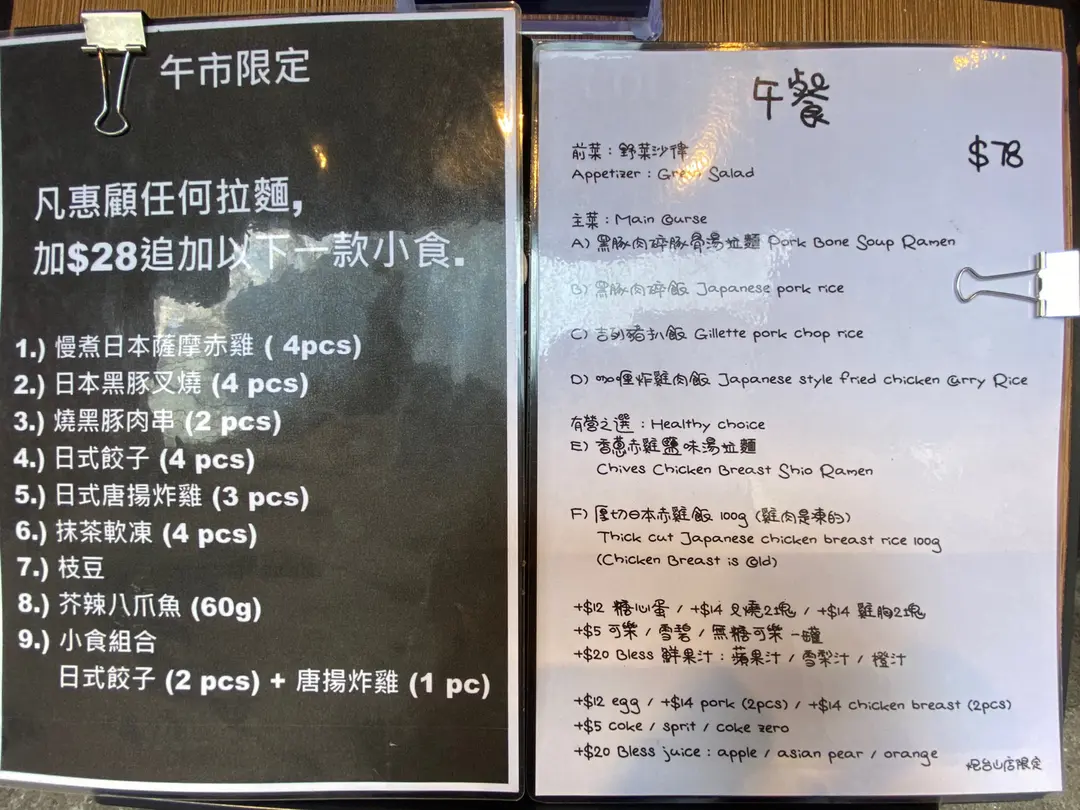 午市限定
凡惠顧任何拉麵,
加$28追加以下一款小食.
1.) 慢煮日本薩摩赤雞 ( 4pcs)
2.) 日本黑豚叉燒 (4 pcs)
3.) 燒黑豚肉串 (2 pcs)
4.) 日式餃子 (4 pcs)
5.) 日式唐揚炸雞 (3 pcs)
6.) 抹茶軟凍 (4 pcs)
7.) 枝豆
8.) 芥辣八爪魚 (60g)
9.) 小食組合
日式餃子 (2 pcs) + 唐揚炸雞 (1 pc)
午餐
$78
前菜 : 野菜沙律
Appetizer : Salad
主菜 : Main Course
A) 黑豚肉碎豚骨湯拉麵 Pork Bone Soup Ramen
B) 黑豚肉碎飯 Japanese pork rice
C) 吉列豬扒飯 Gillette pork chop rice
D) 咖喱炸雞肉飯 Japanese style fried chicken Curry Rice
有營之選 : Healthy choice
E) 香蔥赤雞鹽味湯拉麵
Chives Chicken Breast Shio Ramen
F) 厚切日本赤雞飯 100g (雞肉是凍的)
Thick cut Japanese chicken breast rice 100g
(Chicken Breast is Cold)
+$12 糖心蛋 / +$14 叉燒2塊 / +$14 雞胸2塊
+$5 可樂 / 雪碧 / 無糖可樂 一罐
+$20 Bless 鮮果汁 : 蘋果汁 / 雪梨汁 / 橙汁
+$12 egg / +$14 pork (2pcs) / +$14 chicken breast (2pcs)
+$5 coke / sprit / coke zero
+$20 Bless juice : apple / asian pear / orange
炮台山店限定